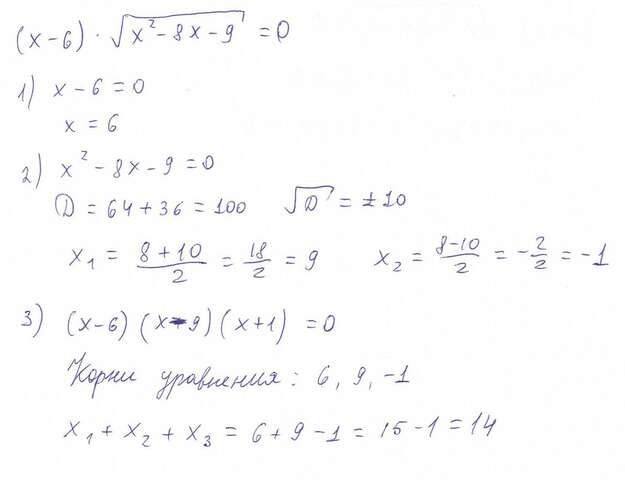 (x-6) · √(x² - 8x - 9) = 0
1) x - 6 = 0
x = 6
2) x² - 8x - 9 = 0
D = 64 + 36 = 100 √D = ±10
x₁ = (8+10)/2 = 18/2 = 9 x₂ = (8-10)/2 = -2/2 = -1
3) (x-6) (x-9) (x+1) = 0
Корни уравнения: 6, 9, -1
x₁ + x₂ + x₃ = 6 + 9 - 1 = 15 - 1 = 14